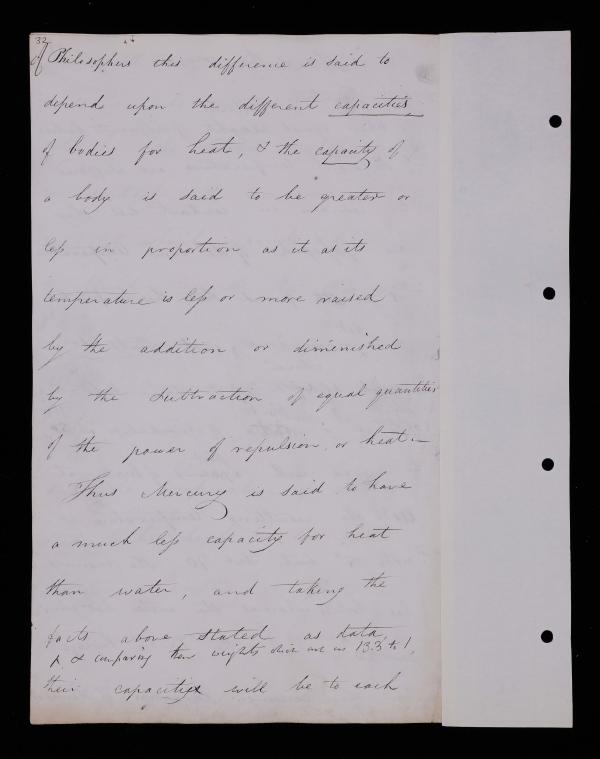 32
of Philosophers this difference is said to
depend upon the different capacities
of bodies for heat, & the capacity of
a body is said to be greater or
less in proportion as it as its
temperature is less or more raised
by the addition or diminished
by the subtraction of equal quantities
of the power of repulsion or heat –
Thus Mercury is said to have
a much less capacity for heat
than water, and taking the
facts above stated as data,
& comparing their weights which are as 13.3 to 1,
their capacities will be to each